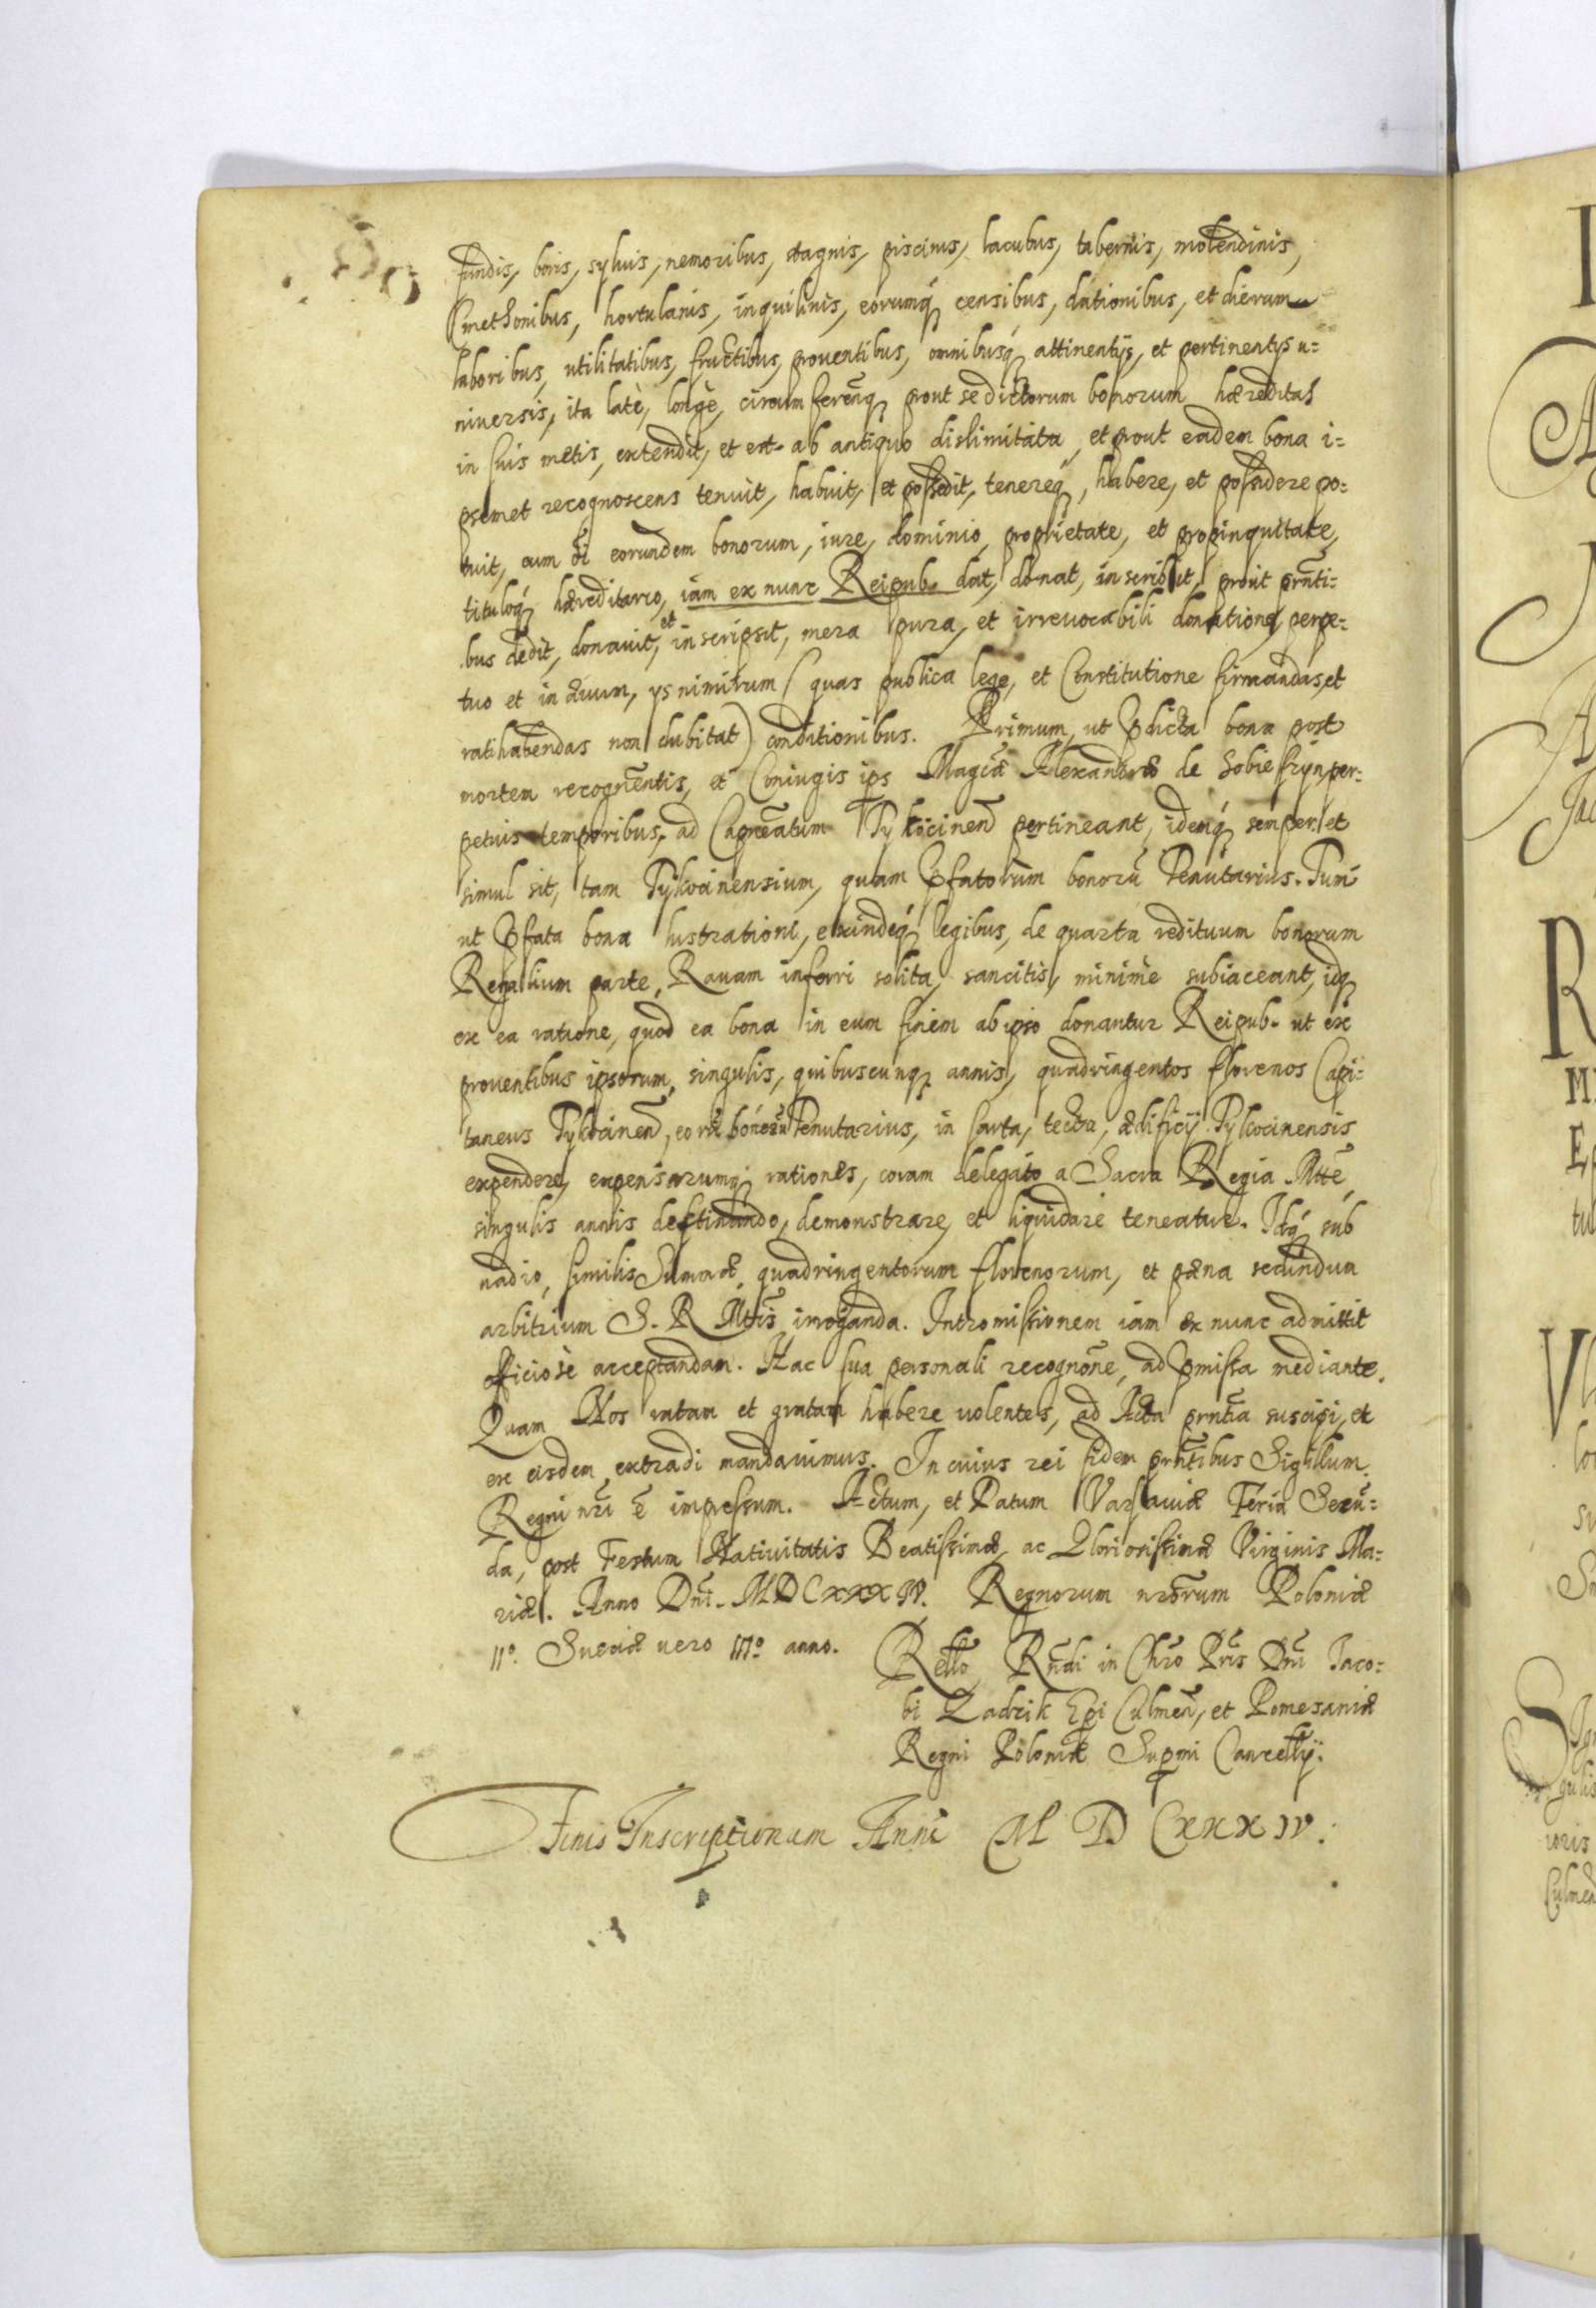 fundis, boris, syluis, nemoribus, stagnis, piscinis, lacubus, tabernis, molendinis,
Cmethonibus, hortulanis, inquilinis, eorumq́ꝫ censibus, dationibus, et dierum
laboribus, utilitatibus, fructibus, prouentibus, omnibusq́ꝫ attinentijs, et pertinentijs u=
niuersis, ita latè, longè, circumferenꝗꝫ prout se dictorum bonorum hæreditas
in suis metis, extendit, et est ab antiquo dislimitata, et prout eadem bona i=
psemet recognoscens tenuit, habuit, et possedit, tenereq́ꝫ, habere, et possidere po=
tuit, cum oĩ eorundem bonorum, iure, dominio, proprietate, et propinquitate,
tituloq́ꝫ hæreditario, iam ex nunc Reipub. dat, donat, inscribit, prout prñti=
bus dedit, donauit, et inscripsit, mera pura, et irreuocabili donatione, perpe=
tuo et in æuum, ys nimirum (quas publica lege, et Constitutione firmandas, et
ratihabendas non dubitat) conditionibus. Primum, ut pdicta bona post
mortem recogñentis, et Coniugis ips Magcæ Alexandræ de Sobieszyn per=
petuis temporibus, ad Capneatum Tykocinen̄ pertineant, idemq́ꝫ semper, et
simul sit, tam Tykocinensium, quam pfatorum bonorũ Tenutarius. Tum
ut pfata bona lustrationi, exindeq́ꝫ legibus, de quarta redituum bonorum
Regalium parte, Rauam inferri solita, sancitis, minimè subiaceant, idꝗꝫ
ex ea ratione, quod ea bona in eum finem ab ipso donantur Reipub. ut ex
prouentibus ipsorum, singulis, quibuscunꝗꝫ annis, quadringentos florenos Capi=
taneus Tykocinen̄, eorũ bonorũ Tenutarius, in sarta, tecta, ædificij Tykocinensis
expendere, expensarumq́ꝫ rationes, coram delegato a Sacra Regia Mtte,
singulis annis destinando, demonstrare, et liquidare teneatur. Idq́ꝫ sub
uadio, similis Summæ quadringentorum florenorum, et pæna secundum
arbitrium S. R. Mttis irroganda. Intromissionem iam ex nunc admittit
officiosè acceptandam. Hac sua personali recognõne, ad pmissa mediante.
Quam Nos ratam et gratam habere uolentes, ad Acta prñtia suscipi, et
ex eisdem extradi mandauimus. In cuius rei fidem prñtibus Sigillum
Regni nrĩ ẽ impressum. Actum, et Datum Varsauiæ Feria Secũ=
da, post Festum Natiuitatis Beatissimæ, ac Gloriosissimæ Virginis Ma=
riæ. Anno Dñi. MDCXXXIV. Regnorum nrõrum Poloniæ
IIº. Sueciæ uero IIIº. anno.
Rello, Rñdi in Chrõ Pris Dñi Iaco=
bi Zadzik Epi Culmeñ, et Pomesaniæ
Regni Poloniæ Supmi Cancellÿ.
Finis Inscriptionum Anni M D CXXXIV.